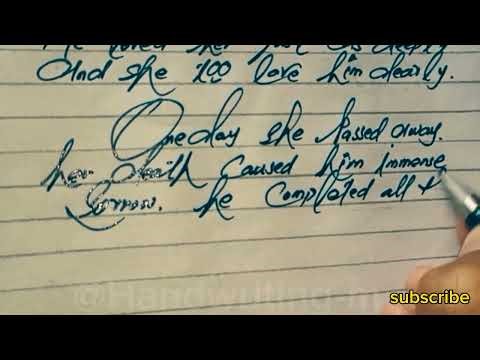 He loved her just as deeply
And she too love him dearly.
One day she passed away.
her death caused him immense
Sorrow. he completed all t
@Handwriting
subscribe